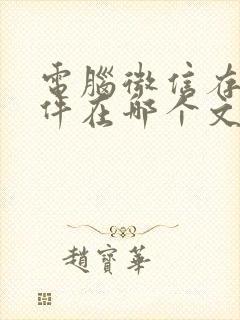 電腦微信存
件在哪个文
趙寶華